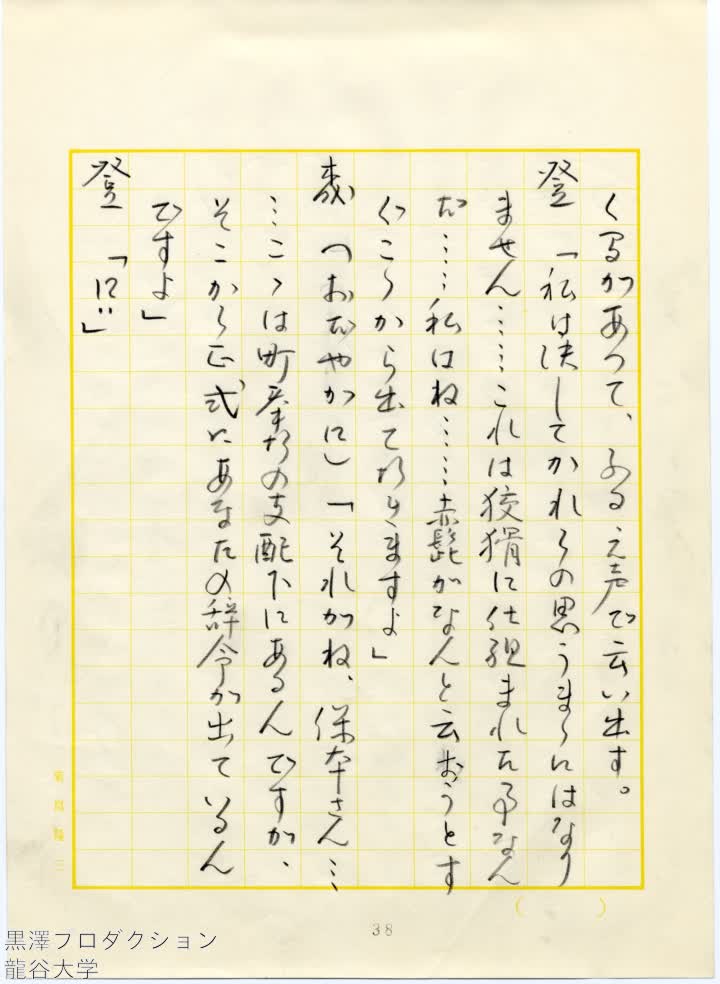 く写があつて、ふるえ声で云い出す。
登「私は決してかれらの思うまゝにはなり
ません……これは狡猾に仕組まれた事なん
だ……私はね……赤髭がなんと云おうとす
ぐこゝから出て行きますよ」
歳（おだやかに）「それがね、保本さん…
…こゝは町奉行の支配下にあるんですが、
そこから正式にあなたの辞令が出ているん
ですよ」
登「に‥」
38
黒澤プロダクション
龍谷大学